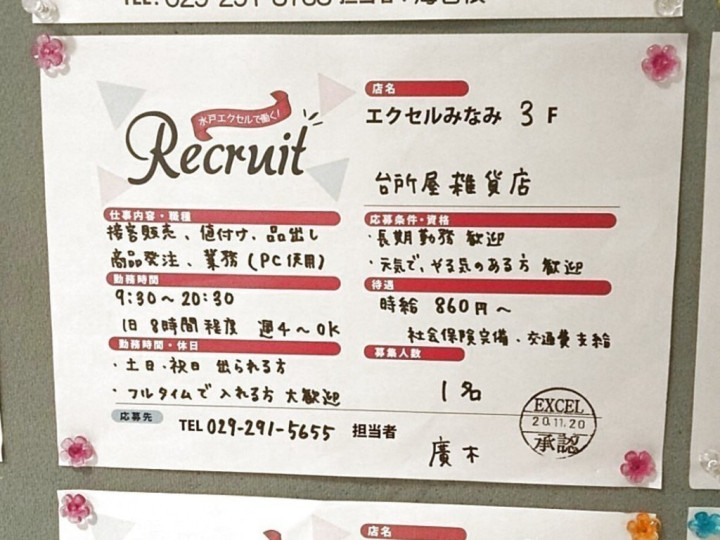 水戸エクセルで働く!
Recruit
店名
エクセルみなみ 3 F
台所屋雑貨店
仕事内容・職種
接客販売、値付け、品出し
商品発注、業務(PC使用)
勤務時間
9:30〜20:30
1日 8時間程度 週4〜OK
勤務時間・休日
・土日・祝日 出られる方
・フルタイムで入れる方 大歓迎
応募条件・資格
・長期勤務 歓迎
・元気で、やる気のある方 歓迎
待遇
時給 860円〜
社会保険完備・交通費支給
募集人数
1名
応募先
TEL 029-291-5655 担当者
廣木
EXCEL
20.11.20
承認
店名